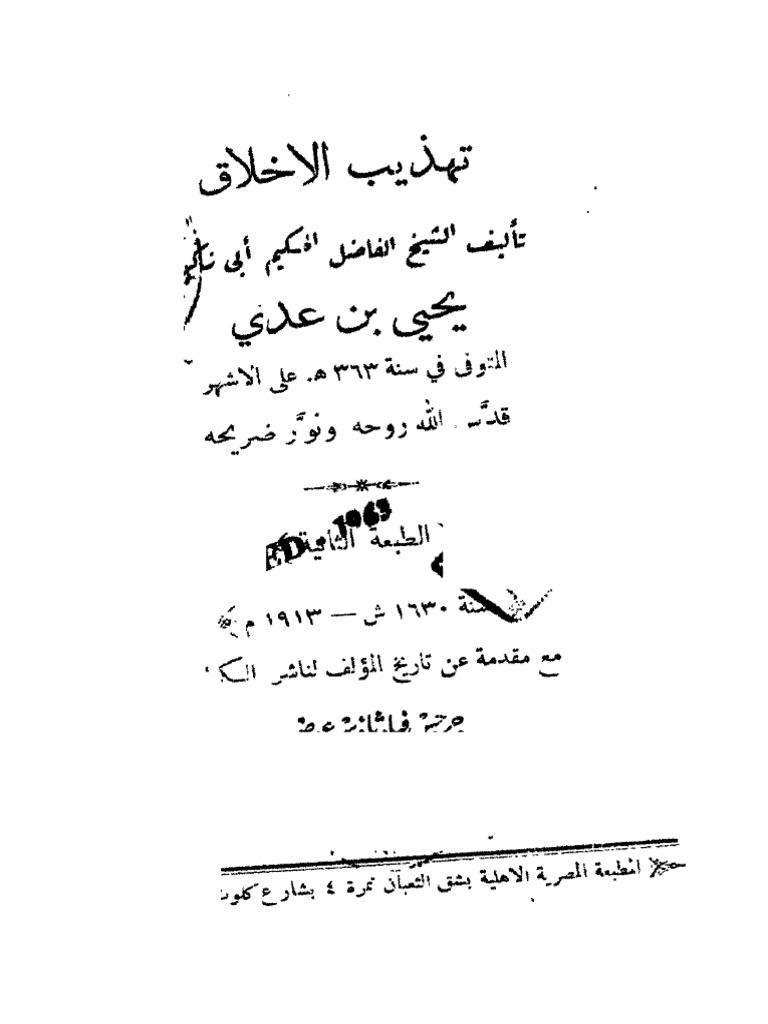 تهذيب الاخلاق
تأليف الشيخ الفاضل الحكيم أبي
يحيي بن عدي
المتوفى في سنة ٣٦٣ ه. على الاشهر
قدَّس الله روحه ونوَّر ضريحه
1963
الطبعة الثانية
سنة ١٦٣٠ ش — ١٩١٣ م
مع مقدمة عن تاريخ المؤلف لناشر
جرجس فيلثاؤس عوض
المطبعة المصرية الاهلية بشق الثعبان نمرة ٤ بشارع كلوت